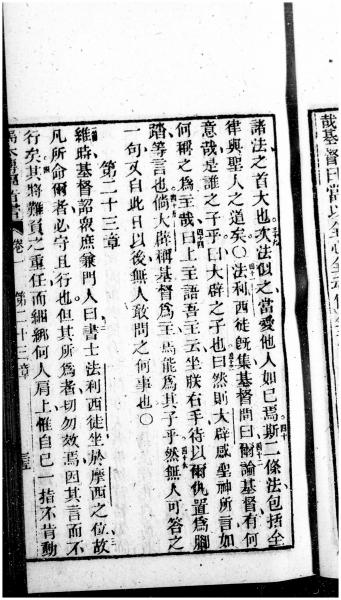 哉基督曰爾以全心全
諸法之首大也次法似之當愛他人如己焉斯二條法包括全
律與聖人之道矣〇法利西徒旣集基督問曰爾論基督有何
意哉是誰之子乎曰大辟之子也曰然則大辟感聖神所言如
何稱之爲主哉曰上主語吾主云坐朕右手待以爾仇置爲腳
踏等言也倘大辟稱基督爲主焉能爲其子乎然無人可答之
一句又自此日以後無人敢問之何事也〇
第二十三章
維時基督詔衆庶兼門人曰書士法利西徒坐於摩西之位故
凡所命爾者必守且行也但其所爲者切勿效焉因其言而不
行矣其將難負之重任而綑綁何人肩上惟自己一指不肯動
卷一 第二十三章